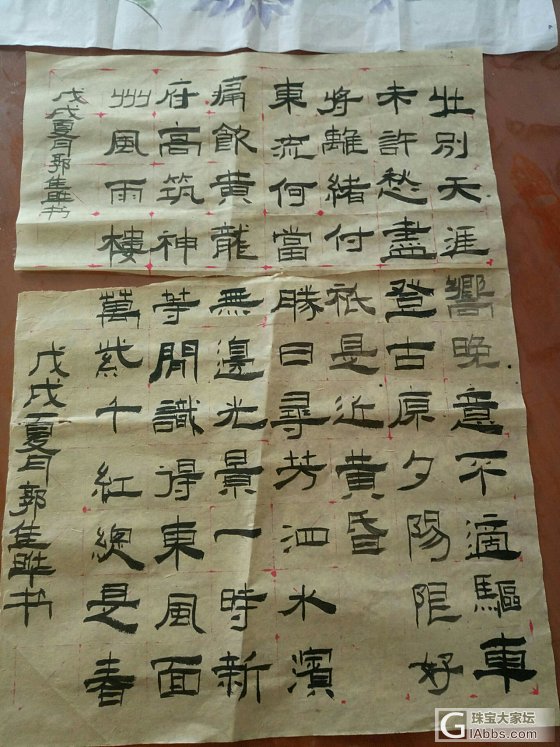 壮别天涯
未許愁盡
将離緒付
東流何當
痛飲黄龍
府高筑神
州風雨樓
戊戌夏月郭书
嚮晚意不適驅車
登古原夕陽限好
祇是近黄昏
勝日尋芳泗水濱
無邊光景一時新
等閒識得東風面
萬紫千紅總是春
戊戌夏月郭书
珠宝大家坛
GIAbbs.com